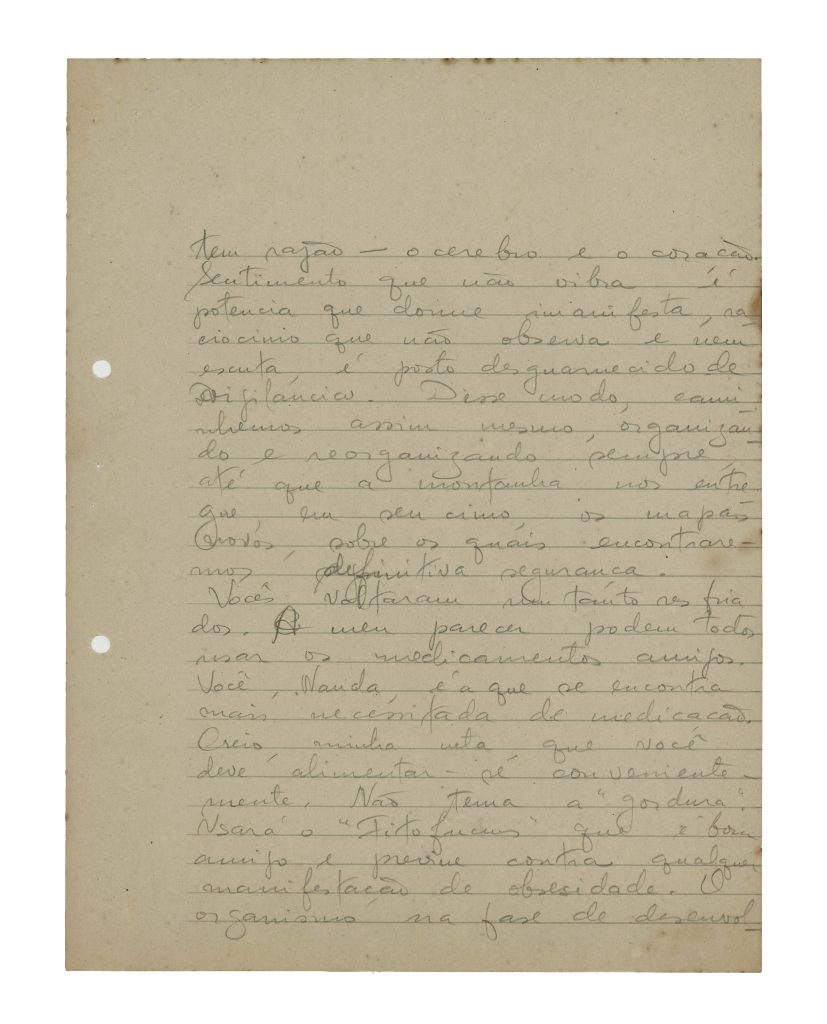 tem razão — o cerebro e o coração.
Sentimento que não vibra é
potencia que dorme imanifesta, ra-
ciocinio que não observa e nem
escuta, é posto desguarnecido de
vigilância. Desse modo, cami-
nhemos assim mesmo, organizan-
do e reorganizando sempre,
até que a montanha nos entre-
gue, em seu cimo, os mapas
novos, sobre os quais encontrare-
mos definitiva segurança.
Vocês voltaram um tanto resfria
dos. A meu parecer podem todos
usar os medicamentos amigos.
Você, Wanda, é a que se encontra
mais necessitada de medicação.
Creio, minha neta que você
deve alimentar-se conveniente-
mente. Não tema a "gordura".
Usará o "Fitofucus" que é bom
amigo e previne contra qualquer
manifestação de obsesidade. O
organismo na fase de desenvol-